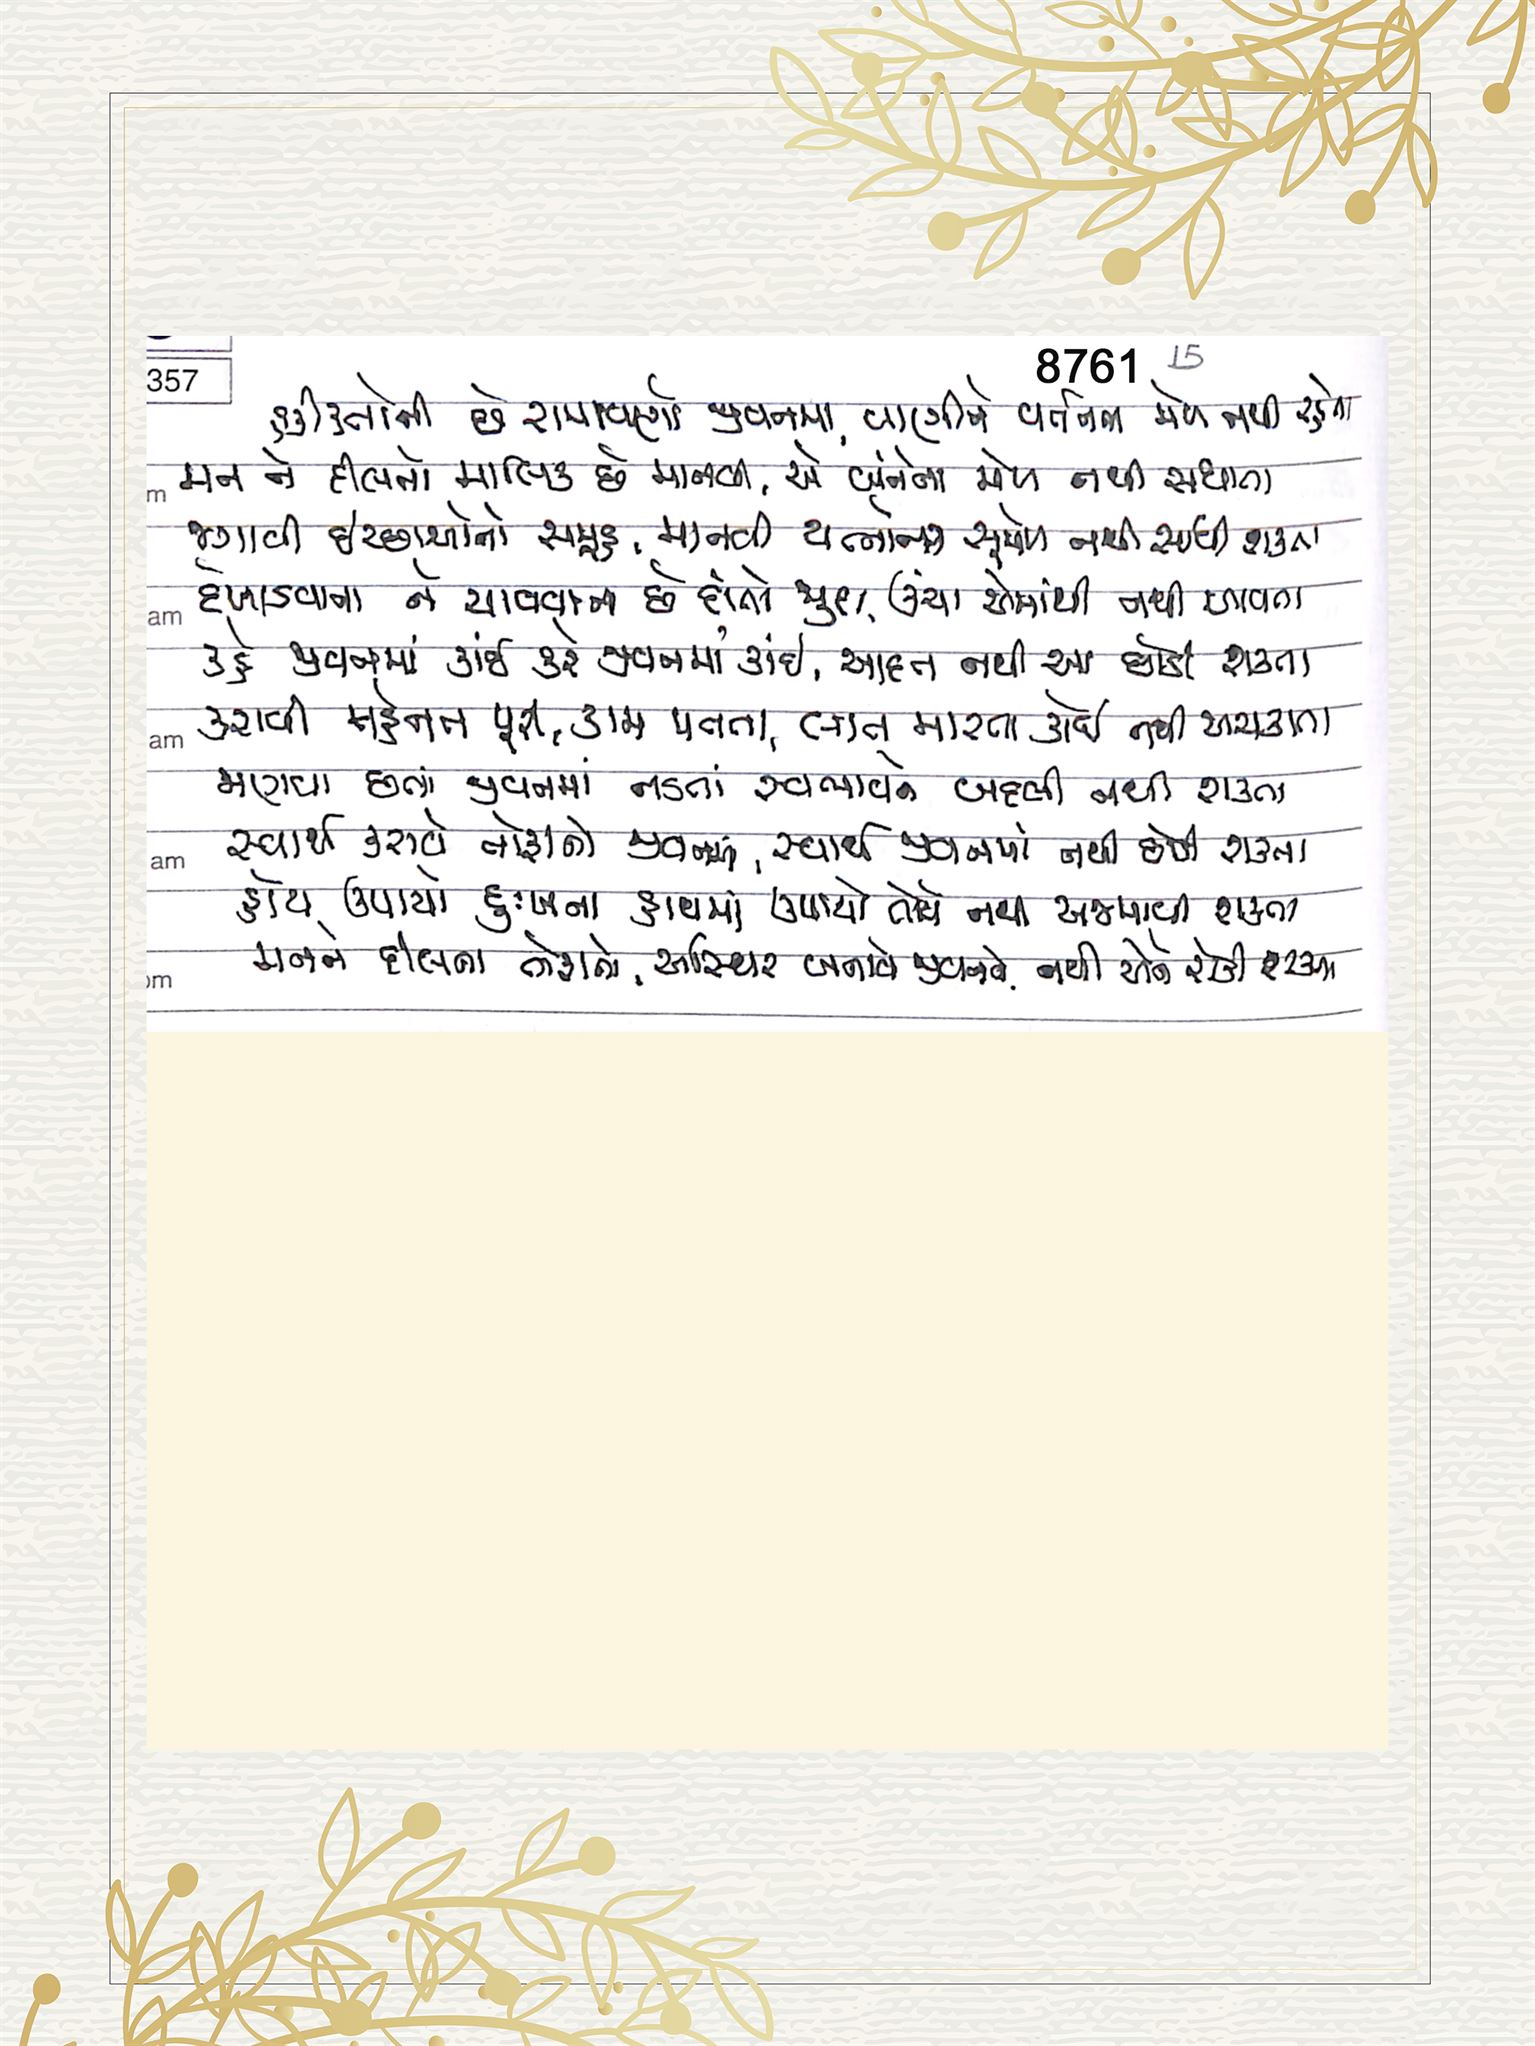 8761 15
357
હકીકતોની છે રામાયણો જીવનમા, વાણીને વર્તનના મેળ નથી રહેતા
m મન ને દીલનો માલિક છે માનવી, એ બંનેના મેળ નથી સધાતા
જગાવી ઇચ્છાઓનો સમૂહ, માનવી યત્નોના સૂમેળ નથી સાધી શકતા
am દેખાડવાના ને ચાવવાના છે દાંતો જુદા, ઉંચા એમાંથી નથી આવતા
કહે જીવનમાં કાંઈ કરે જીવનમાં કાંઇ, આદત નથી આ છોડી શકતા
am કરાવી મહેનત પૂરી, કામ પતતા, લાત મારતા કોઈ નથી અચકાતા
મળવા છતાં જીવનમાં નડતાં સ્વભાવને બદલી નથી શકતા
am સ્વાર્થ કરાવે જોડીતો જીવનમાં, સ્વાર્થ જીવનમાં નથી છોડી શકતા
હોય ઉપાયો દુઃખના હાથમાં ઉપાયો તોયે નથી અજમાવી શકતા
om મનને દીલના તોફાનો, અસ્થિર બનાવે જીવનને, નથી એને રોકી શકતા